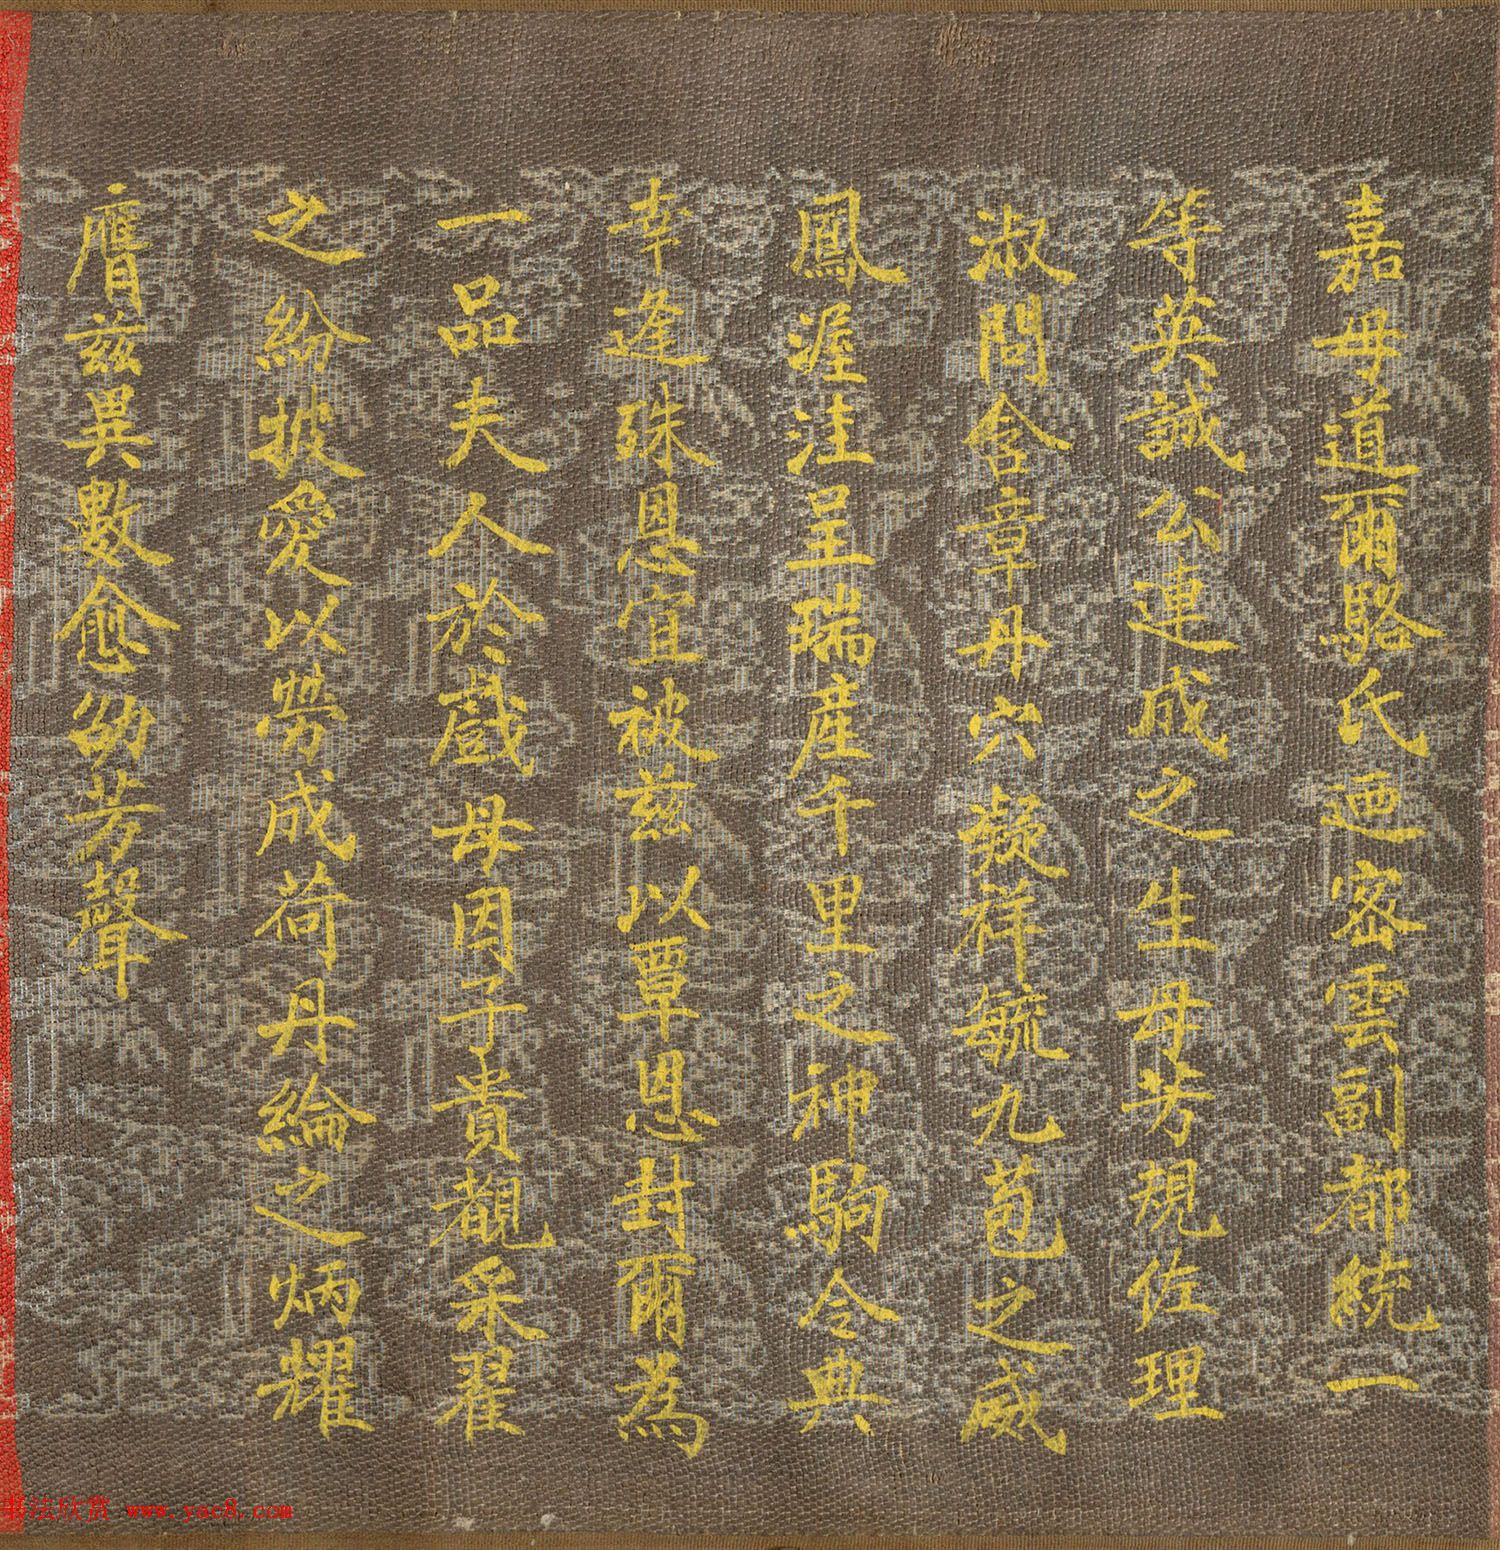 嘉毋道爾駱氏廼密雲副都統一
等英誠公連成之生母芳規佐理
淑問含章丹穴凝祥毓九苞之威
鳳渥洼呈瑞産千里之神駒令典
幸逢殊恩宜被茲以覃恩封爾為
一品夫人於戲母因子貴覩采翟
之紛披愛以勞成荷丹綸之炳耀
膺茲異數愈劭芳聲
书法欣赏 www.yac8.com